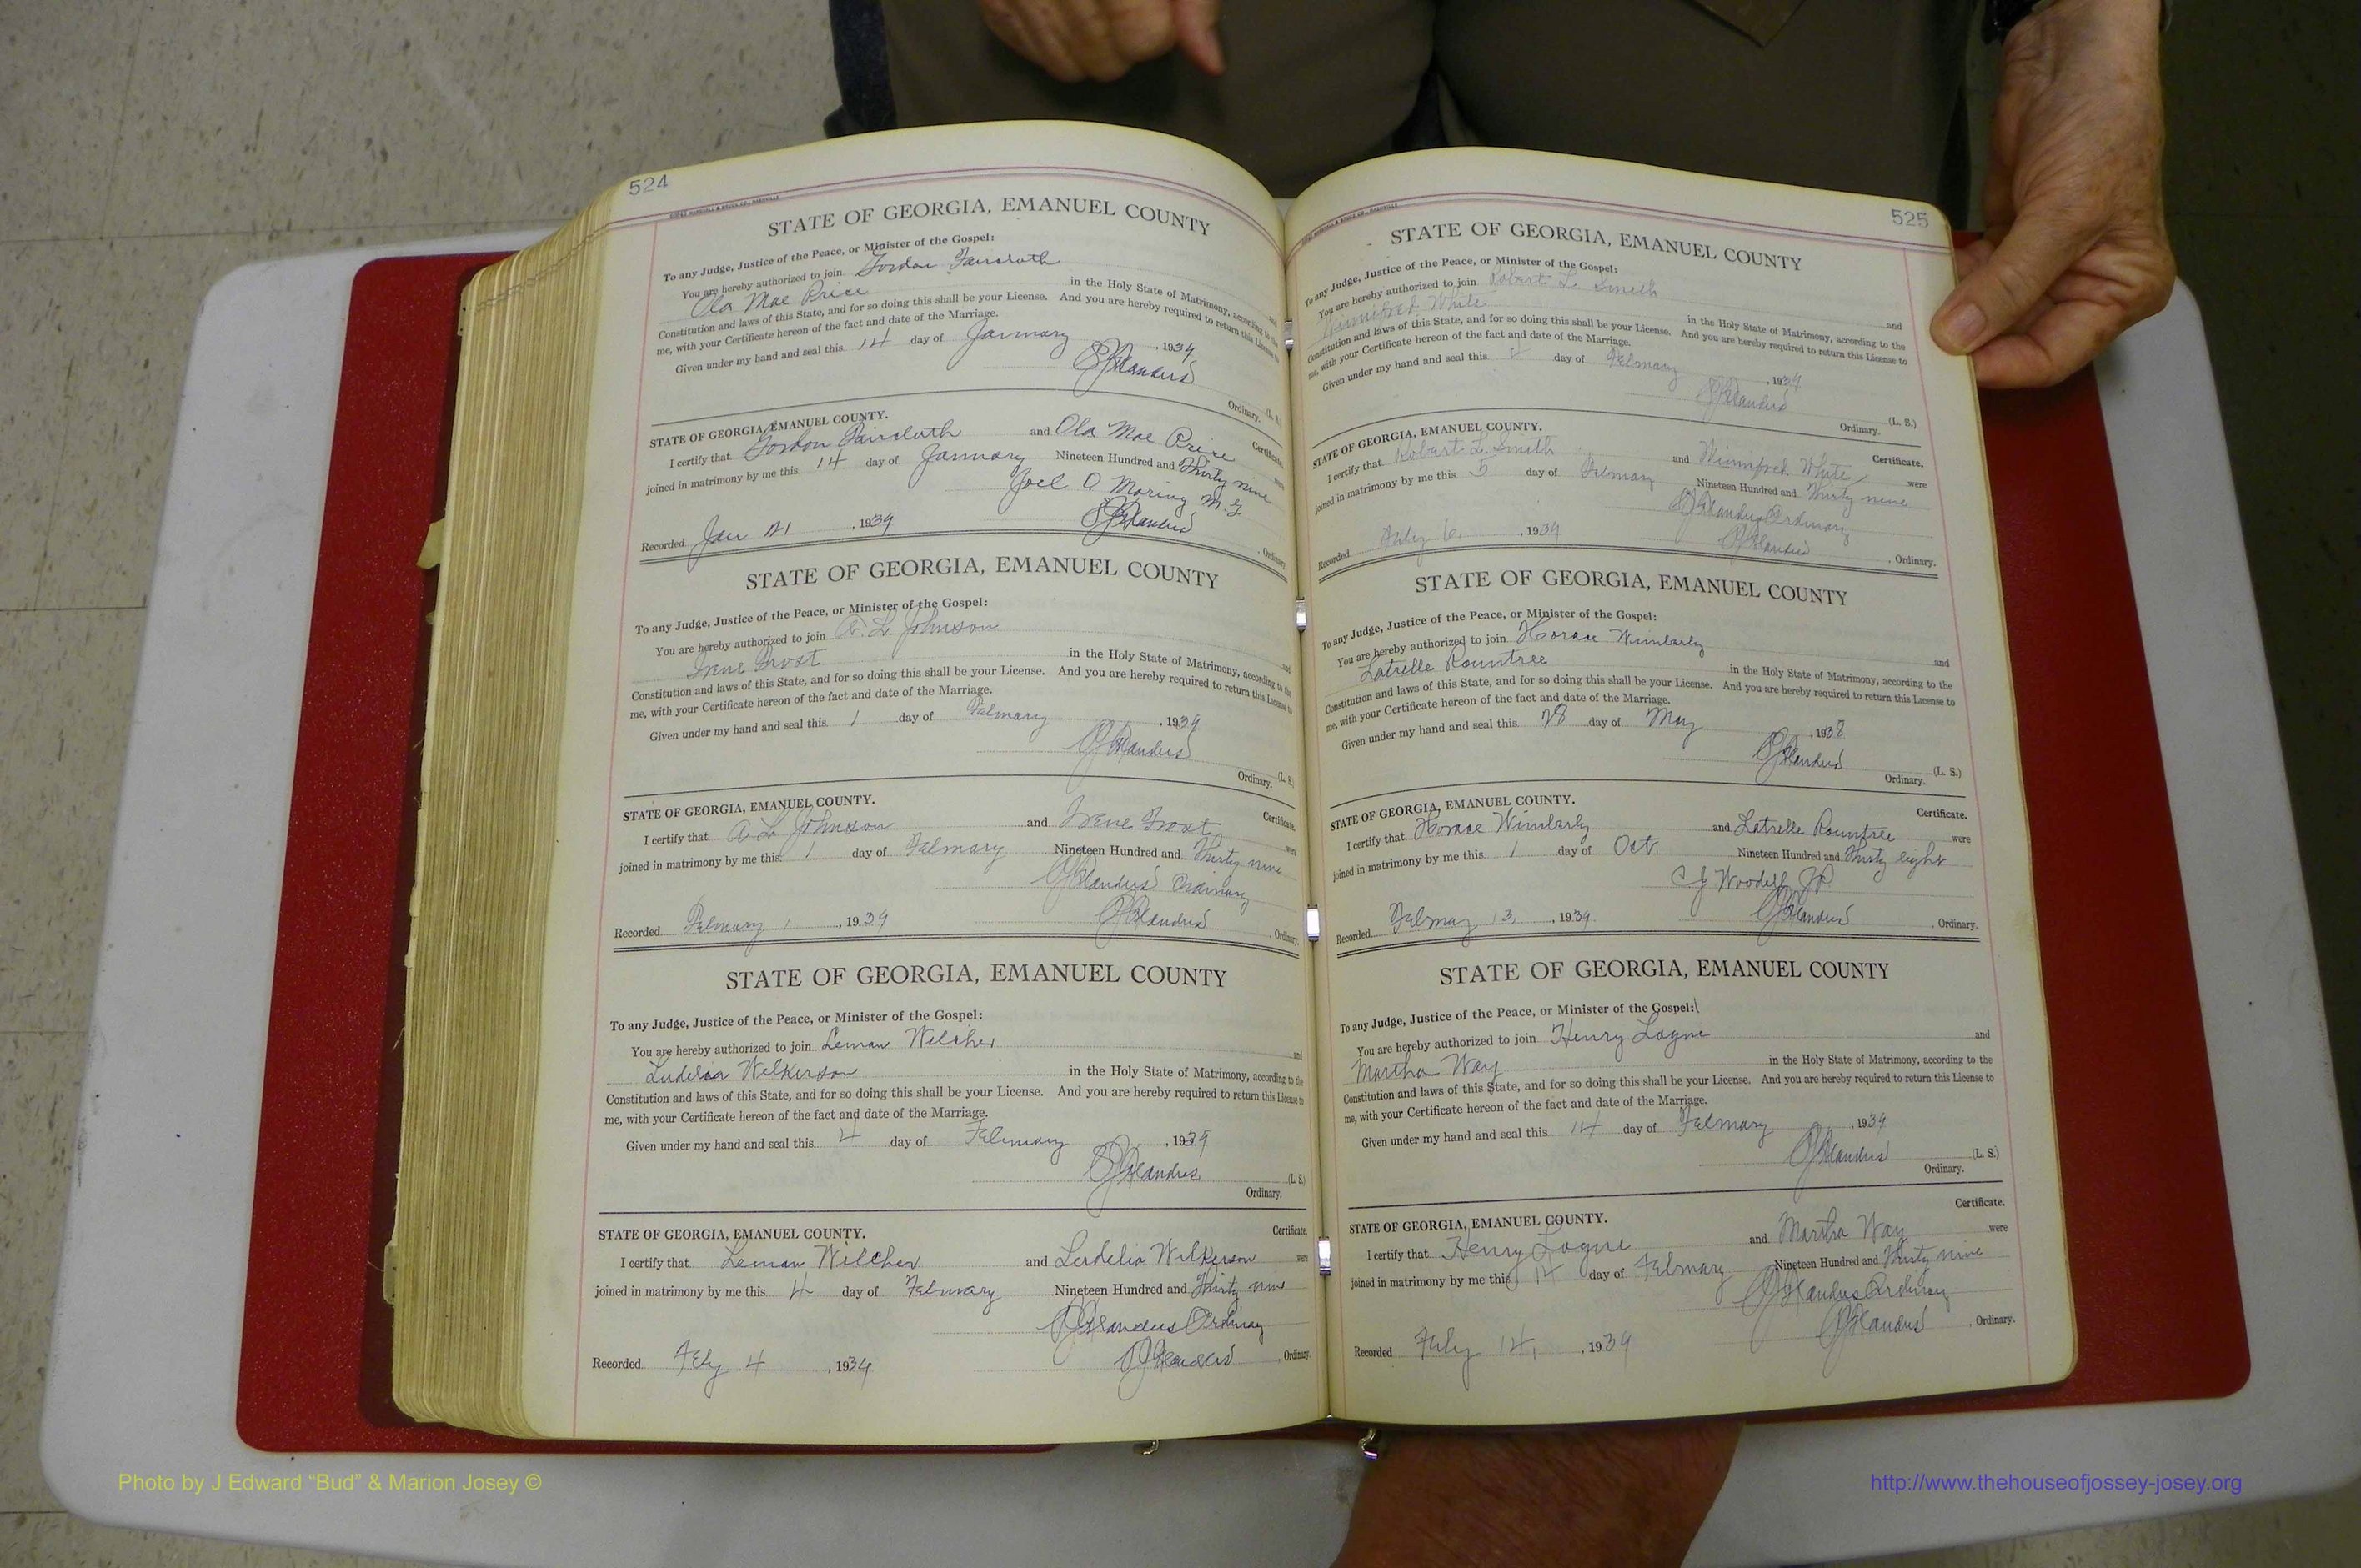 524
STATE OF GEORGIA, EMANUEL COUNTY
To any Judge, Justice of the Peace, or Minister of the Gospel:
You are hereby authorized to join Gordon Faircloth and
Ola Mae Price in the Holy State of Matrimony, according to the
Constitution and laws of this State, and for so doing this shall be your License. And you are hereby required to return this License to
me, with your Certificate hereon of the fact and date of the Marriage.
Given under my hand and seal this 14 day of January, 1939
(L. S.)
Ordinary.
STATE OF GEORGIA, EMANUEL COUNTY.
Certificate.
I certify that Gordon Faircloth and Ola Mae Price were
joined in matrimony by me this 14 day of January Nineteen Hundred and Thirty nine
Joel O Moring M.G
Recorded Jan 21, 1939, Ordinary.
STATE OF GEORGIA, EMANUEL COUNTY
To any Judge, Justice of the Peace, or Minister of the Gospel:
You are hereby authorized to join A. L. Johnson and
Irene Frost in the Holy State of Matrimony, according to the
Constitution and laws of this State, and for so doing this shall be your License. And you are hereby required to return this License to
me, with your Certificate hereon of the fact and date of the Marriage.
Given under my hand and seal this 1 day of Febmary, 1939
(L. S.)
Ordinary.
STATE OF GEORGIA, EMANUEL COUNTY.
Certificate.
I certify that A. L. Johnson and Irene Frost were
joined in matrimony by me this 1 day of Febmary Nineteen Hundred and Thirty nine
Ordinary
Recorded Febmary 1, 1939, Ordinary.
STATE OF GEORGIA, EMANUEL COUNTY
To any Judge, Justice of the Peace, or Minister of the Gospel:
You are hereby authorized to join Leman Wilcher and
Ludelia Wilkerson in the Holy State of Matrimony, according to the
Constitution and laws of this State, and for so doing this shall be your License. And you are hereby required to return this License to
me, with your Certificate hereon of the fact and date of the Marriage.
Given under my hand and seal this 4 day of Febmary, 1939
(L. S.)
Ordinary.
STATE OF GEORGIA, EMANUEL COUNTY.
Certificate.
I certify that Leman Wilcher and Lerdelia Wilkerson were
joined in matrimony by me this 4 day of Febmary Nineteen Hundred and Thirty nine
Ordinary
Recorded Feby 4, 1939, Ordinary.
525
STATE OF GEORGIA, EMANUEL COUNTY
To any Judge, Justice of the Peace, or Minister of the Gospel:
You are hereby authorized to join Robert L. Smith and
Winnifred White in the Holy State of Matrimony, according to the
Constitution and laws of this State, and for so doing this shall be your License. And you are hereby required to return this License to
me, with your Certificate hereon of the fact and date of the Marriage.
Given under my hand and seal this day of Febmary, 1939
(L. S.)
Ordinary.
STATE OF GEORGIA, EMANUEL COUNTY.
Certificate.
I certify that Robert L. Smith and Winnifred White were
joined in matrimony by me this 5 day of Febmary Nineteen Hundred and Thirty nine
Ordinary
Recorded Feby 6, 1939, Ordinary.
STATE OF GEORGIA, EMANUEL COUNTY
To any Judge, Justice of the Peace, or Minister of the Gospel:
You are hereby authorized to join Horace Wimberly and
Latrelle Rountree in the Holy State of Matrimony, according to the
Constitution and laws of this State, and for so doing this shall be your License. And you are hereby required to return this License to
me, with your Certificate hereon of the fact and date of the Marriage.
Given under my hand and seal this 28 day of May, 1938
(L. S.)
Ordinary.
STATE OF GEORGIA, EMANUEL COUNTY.
Certificate.
I certify that Horace Wimberly and Latrelle Rountree were
joined in matrimony by me this 1 day of Oct. Nineteen Hundred and Thirty eight
Woodell JP
Recorded 13, 1939, Ordinary.
STATE OF GEORGIA, EMANUEL COUNTY
To any Judge, Justice of the Peace, or Minister of the Gospel:
You are hereby authorized to join Henry Logue and
Martha Way in the Holy State of Matrimony, according to the
Constitution and laws of this State, and for so doing this shall be your License. And you are hereby required to return this License to
me, with your Certificate hereon of the fact and date of the Marriage.
Given under my hand and seal this 14 day of Febmary, 1939
(L. S.)
Ordinary.
STATE OF GEORGIA, EMANUEL COUNTY.
Certificate.
I certify that Henry Logue and Martha Way were
joined in matrimony by me this 14 day of Febmary Nineteen Hundred and Thirty nine
Ordinary
Recorded Feby 14, 1939, Ordinary.
Photo by J Edward “Bud” & Marion Josey ©
http://www.thehouseofjossey-josey.org